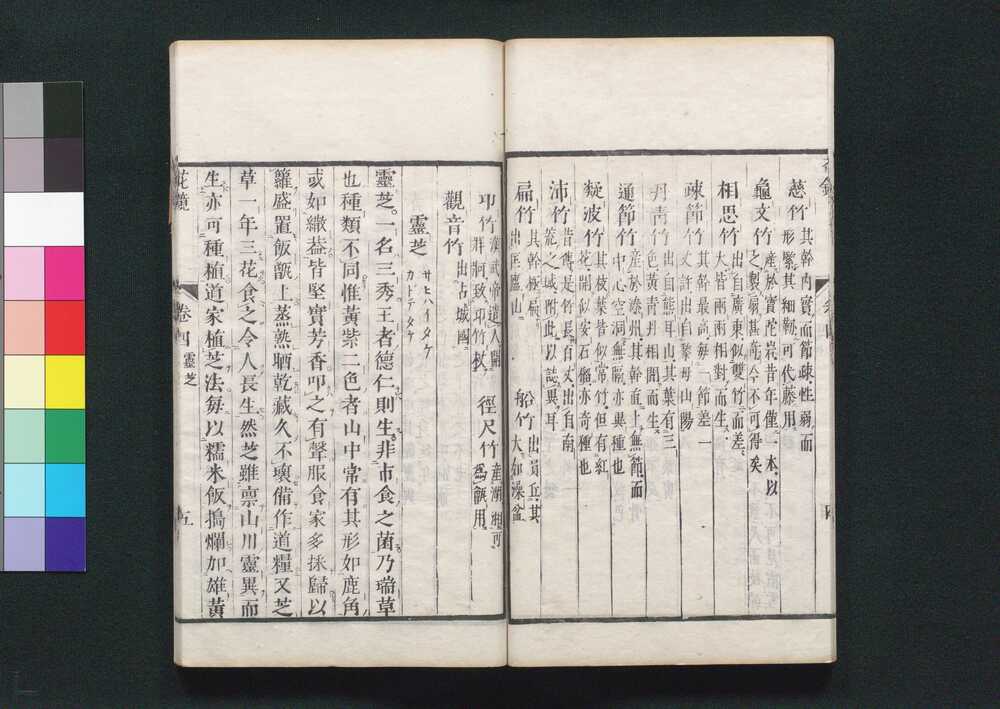 慈竹 其幹内實而節疎性弱而
形緊其細勒可代藤用
龜文竹 産於寶陀岩昔年僅一本以
之製扇甚奇今不可得矣
相思竹 出自廣東似雙竹而差
大皆兩兩相對而生
疎節竹 其幹最高每一節差一
丈許出自黎母山陽
丹青竹 出自熊耳山其葉有三
色黄青丹相間而生
通節竹 産於溱州其幹直上無節而
中心空洞無隔亦異種也
凝波竹 其枝葉皆似常竹但有紅
花開似安石榴亦奇種也
沛竹 昔傳是竹長百丈出自南
荒之域附此以誌異耳
扁竹 其幹極扁 船竹 出員丘其
出匡廬山 大如澡盆
卭竹 漢武帝遣人開 徑尺竹 産湖湘可
牂牁致卭竹杖 爲甑用
觀音竹 出占城國
靈芝 サヒハイタケ
カドテタケ
靈芝一名三秀王者德仁則生非市食之菌乃瑞草
也種類不同惟黄紫二色者山中常有其形如鹿角
或如繖葢皆堅實芳香叩之有聲服食家多採歸以
籮盛置飯甑上蒸熟晒乾藏久不壞備作道糧又芝
草一年三花食之令人長生然芝雖禀山川靈異而
生亦可種植道家植芝法每以糯米飯搗爛加雄黄
花鏡 卷四 靈芝 五